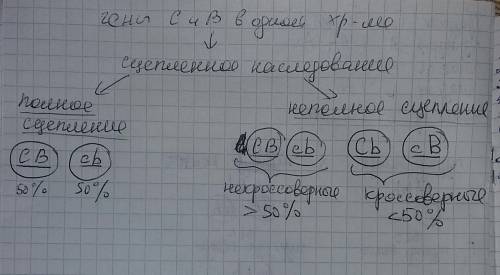 гены С и В в одной хр-ме
сцепленное наследование
полное сцепление
неполное сцепление
CB cb
CB cb Cb cB
50% 50%
некроссоверные кроссоверные
>50% <50%